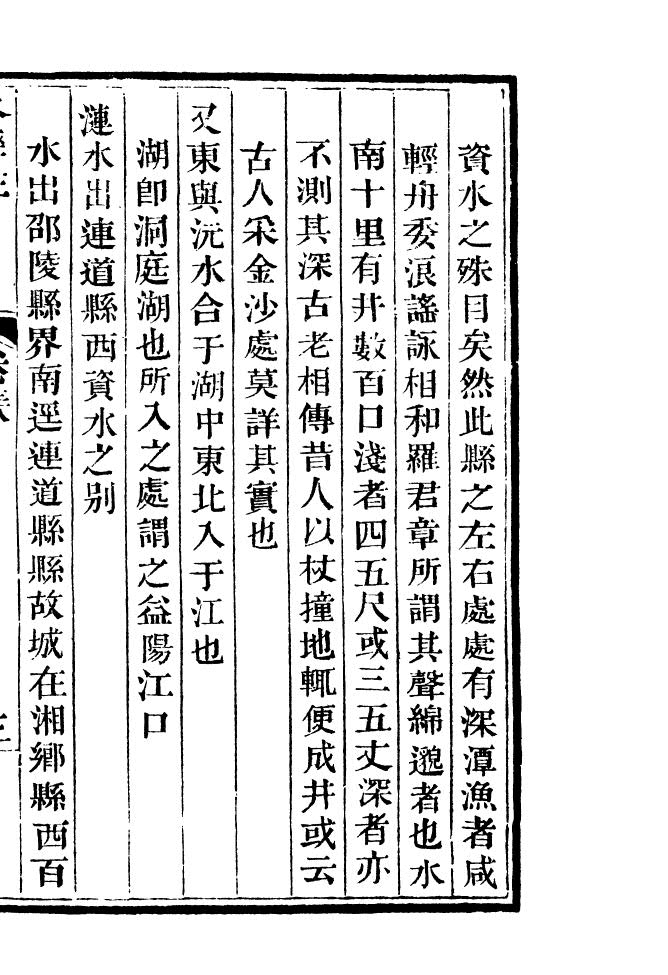 資水之殊目矣然此縣之左右處處有深潭漁者咸
輕舟委浪謠詠相和羅君章所謂其聲綿邈者也水
南十里有井數百口淺者四五尺或三五丈深者亦
不測其深古老相傳昔人以杖撞地輒便成井或云
古人采金沙處莫詳其實也
又東與沅水合于湖中東北入于江也
湖卽洞庭湖也所入之處謂之益陽江口
漣水出連道縣西資水之別
水出邵陵縣界南逕連道縣縣故城在湘鄉縣西百